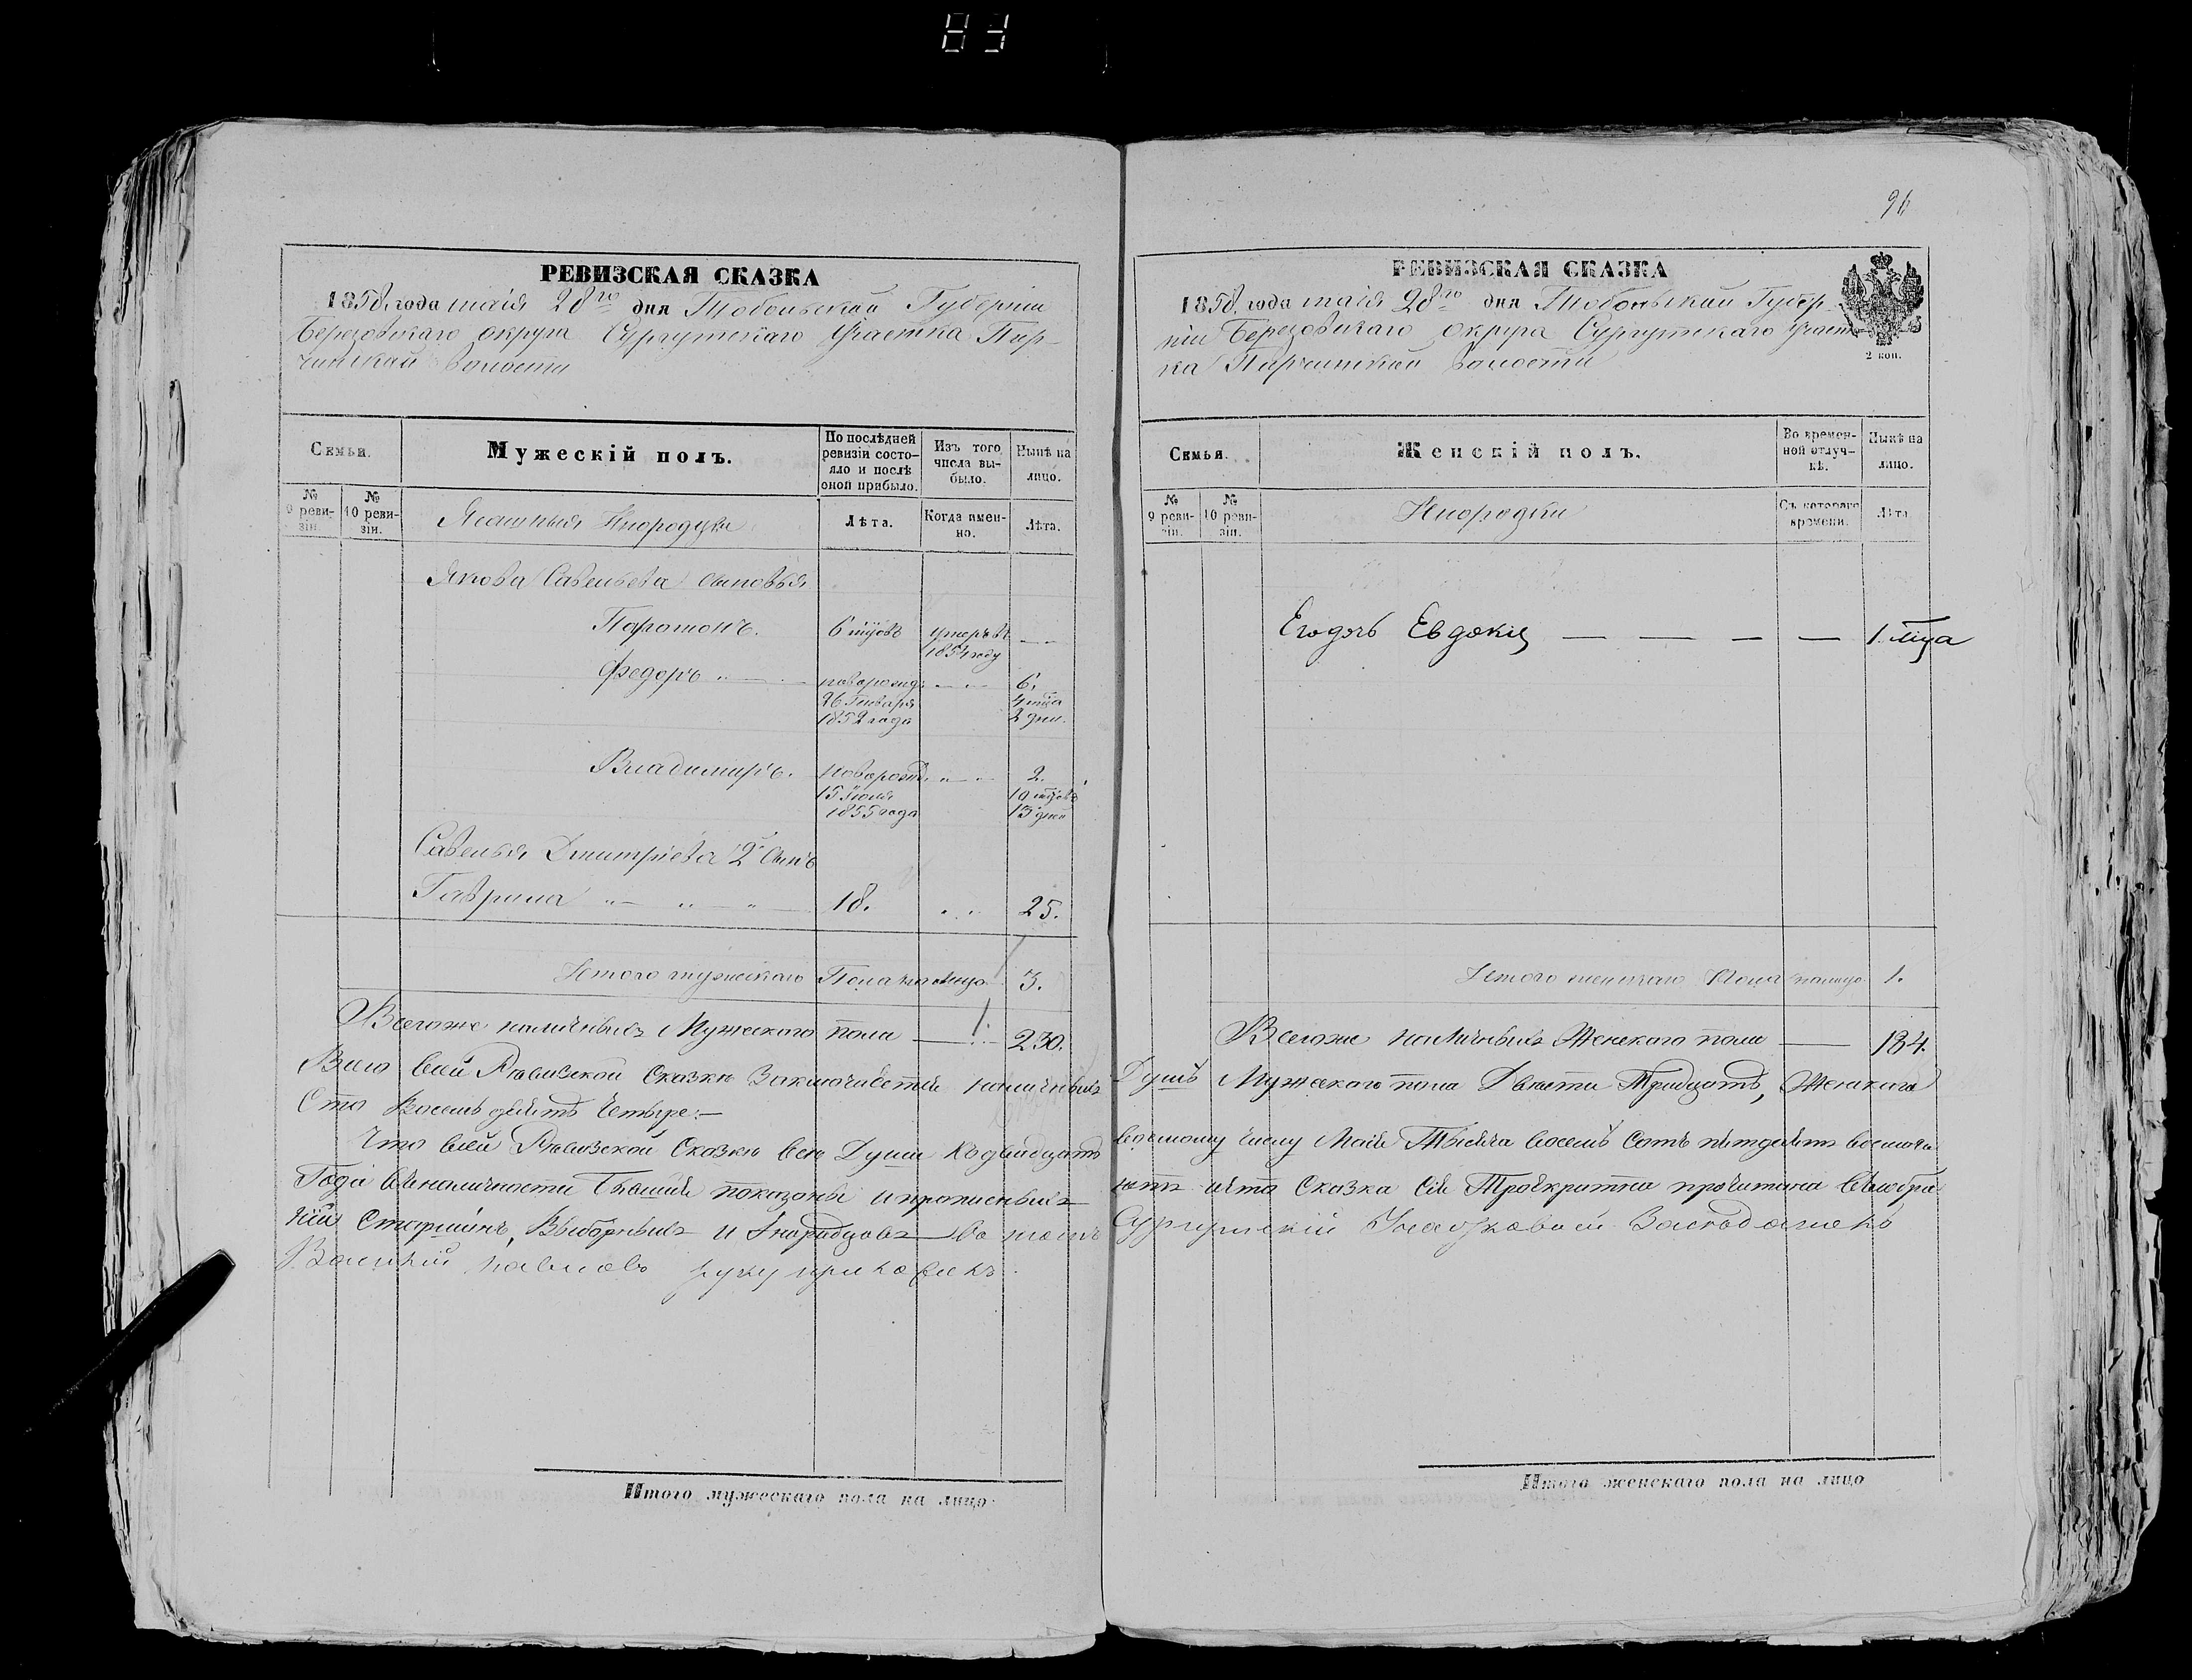 83
РЕВИЗСКАЯ СКАЗКА
1858 года маія 28го дня Тобольской Губерніи
Березовскаго округа Сургутскаго Участка Пир-
чинской волости
Семьи.
Мужескій полъ.
По послѣдней ревизіи состо-яло и послѣ оной прибыло.
Изъ того числа вы-было.
Нынѣ на лицо.
№ 9 реви-зіи.
№ 10 реви-зіи.
Ясашныя Инородцы
Лѣта.
Когда имен-но.
Лѣта.
Якова Савельева сыновья
Парамонъ. 6 мцовъ умеръ въ 1854 году
Федоръ новорожд. 26 Генваря 1852 года 6. 4 мца 2 дни.
Владимиръ. новорожд. 15 Іюля 1855 года 2. 10 мцовъ 13 дней
Савелья Дмитріева 2й Сынъ
Гаврила 18. 25.
Итого мужескаго Пола на лицо 3.
Всегоже наличныхъ Мужескаго пола 230.
Всего всей Ревизской Сказкѣ Заключается наличныхъ
Сто Восемьдесятъ Четыре.—
Что всей Ревизской Сказкѣ всѣ Души къ двадцать
Года въ наличности бывшіе показаны и прописныхъ
ніи Старшинъ, Выборныхъ и Инородцовъ—въ томъ
Василій Павловъ руку приложилъ.
Итого мужескаго пола на лицо
96
РЕВИЗСКАЯ СКАЗКА
1858 года маія 28го дня Тобольской Губер-
ніи Березовскаго округа Сургутскаго Участ-
ка Пирчинской волости
2 коп.
Семьи.
Женскій полъ.
Во времен-ной отлуч-кѣ.
Нынѣ на лицо.
№ 9 реви-зіи.
№ 10 реви-зіи.
Инородки
Съ котораго времени.
Лѣта
Его дочь Евдокія — — — — 1. мца
Итого женскаго Пола на лицо 1.
Всегоже наличныхъ Женскаго пола — 184.
Душъ Мужескаго пола Двѣсти Тридцать, Женскаго
восьмому числу Маія Тысяча восемь сотъ пятдесятъ восьмого
нѣтъ и эта Сказка Сія Троекратно прочитана въ собра
Сургутскій Участковой Засѣдатель
Итого женскаго пола на лицо